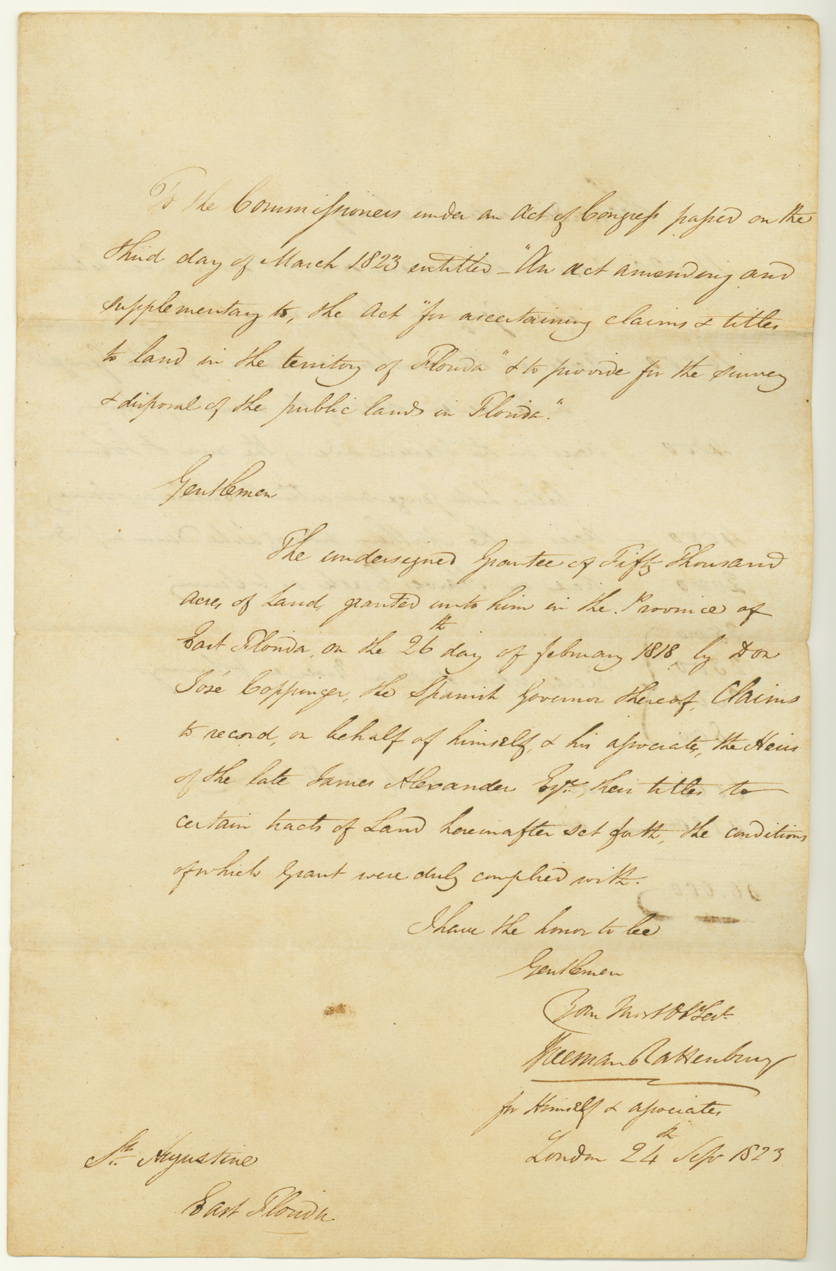 To the Commissioners under an Act of Congress passed on the
third day of March 1823 entitled - "An act amending and
supplementary to, the Act "for ascertaining claims & titles
to land in the territory of Florida" & to provide for the survey
& disposal of the public lands in Florida."
Gentlemen
The undersigned Grantee of Fifty Thousand
acres of Land, granted unto him in the Province of
East Florida, on the 26th day of february 1818, by Don
José Coppinger, the Spanish Governor thereof, Claims
to record, on behalf of himself, & his associates, the Heirs
of the late James Alexander Esqr. their titles to
certain tracts of Land hereinafter set forth, the conditions
of which Grant were duly complied with.
I have the honor to be
Gentlemen
Your Most Obt Sert
Freeman Rattenbury
for Himself & associates
London 24th Sepr 1823
St. Augustine
East Florida